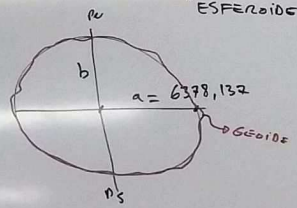 ESFEROIDE
PN
b
a = 6378,137
GEOIDE
PS